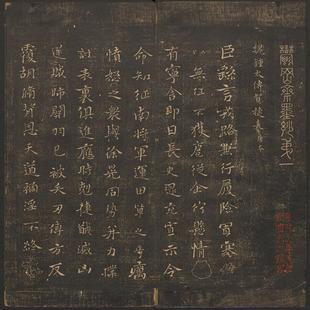 鬱岡齋墨妙第一
魏鍾太傅賀捷表
臣繇言戎路兼行履險冒寒臣
以無任不獲扈從企佇懸情
有寧舍即日長史逮充宣示令
命知征南將軍運田單之奇厲
憤怒之衆與徐晃同勢并力撲
討表裏俱進應時剋捷馘滅凶
逆賊帥關羽已被矢刃傅方反
覆胡脩背恩天道禍淫不終